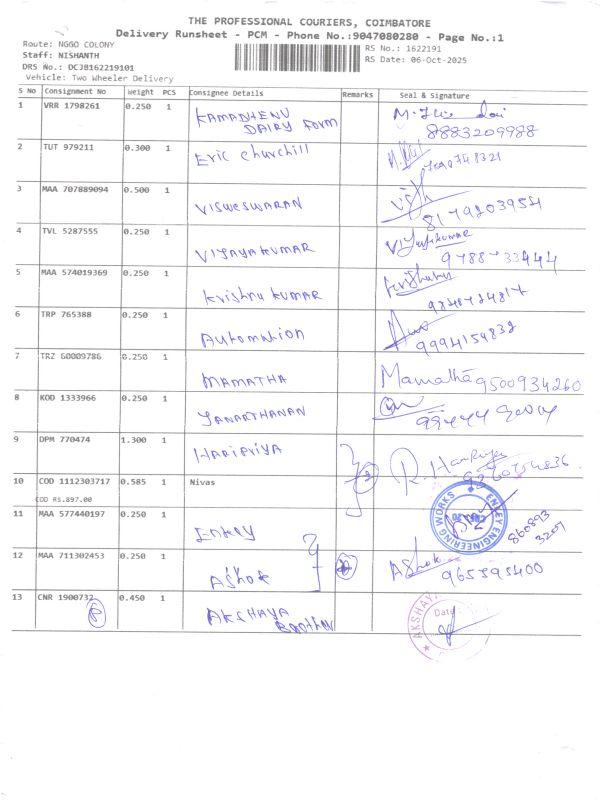 THE PROFESSIONAL COURIERS, COIMBATORE
Delivery Runsheet - PCM - Phone No.:9047080280 - Page No.:1
Route: NGGO COLONY
RS No.: 1622191
Staff: NISHANTH
RS Date: 06-Oct-2025
DRS No.: DCJB162219101
Vehicle: Two Wheeler Delivery
S No Consignment No Weight PCS Consignee Details Remarks Seal & Signature
1 VRR 1798261 0.250 1 KAMADHENU DAIRY FORM
8883209988
2 TUT 979211 0.300 1 Eric churchill
3 MAA 707889094 0.500 1 VISWESWARAN
4 TVL 5287555 0.250 1 VIJAYAKUMAR
5 MAA 574019369 0.250 1 Krishnu KUMAR
6 TRP 765388 0.250 1 Automation
9994154832
7 TRZ 60009786 0.250 1 MAMATHA Mamatha 9500934260
8 KOD 1333966 0.250 1 JANARTHANAN
9 DPM 770474 1.300 1 HARIPRIYA
10 COD 1112303717 0.585 1 Nivas
COD RS.897.00
11 MAA 577440197 0.250 1 Enkey
ENKEY ENGINEERING WORKS
860893
3207
12 MAA 711302453 0.250 1 AShok AShok
965595400
13 CNR 1900732 0.450 1 AKSHAYA Brother
AKSHAYA
Date